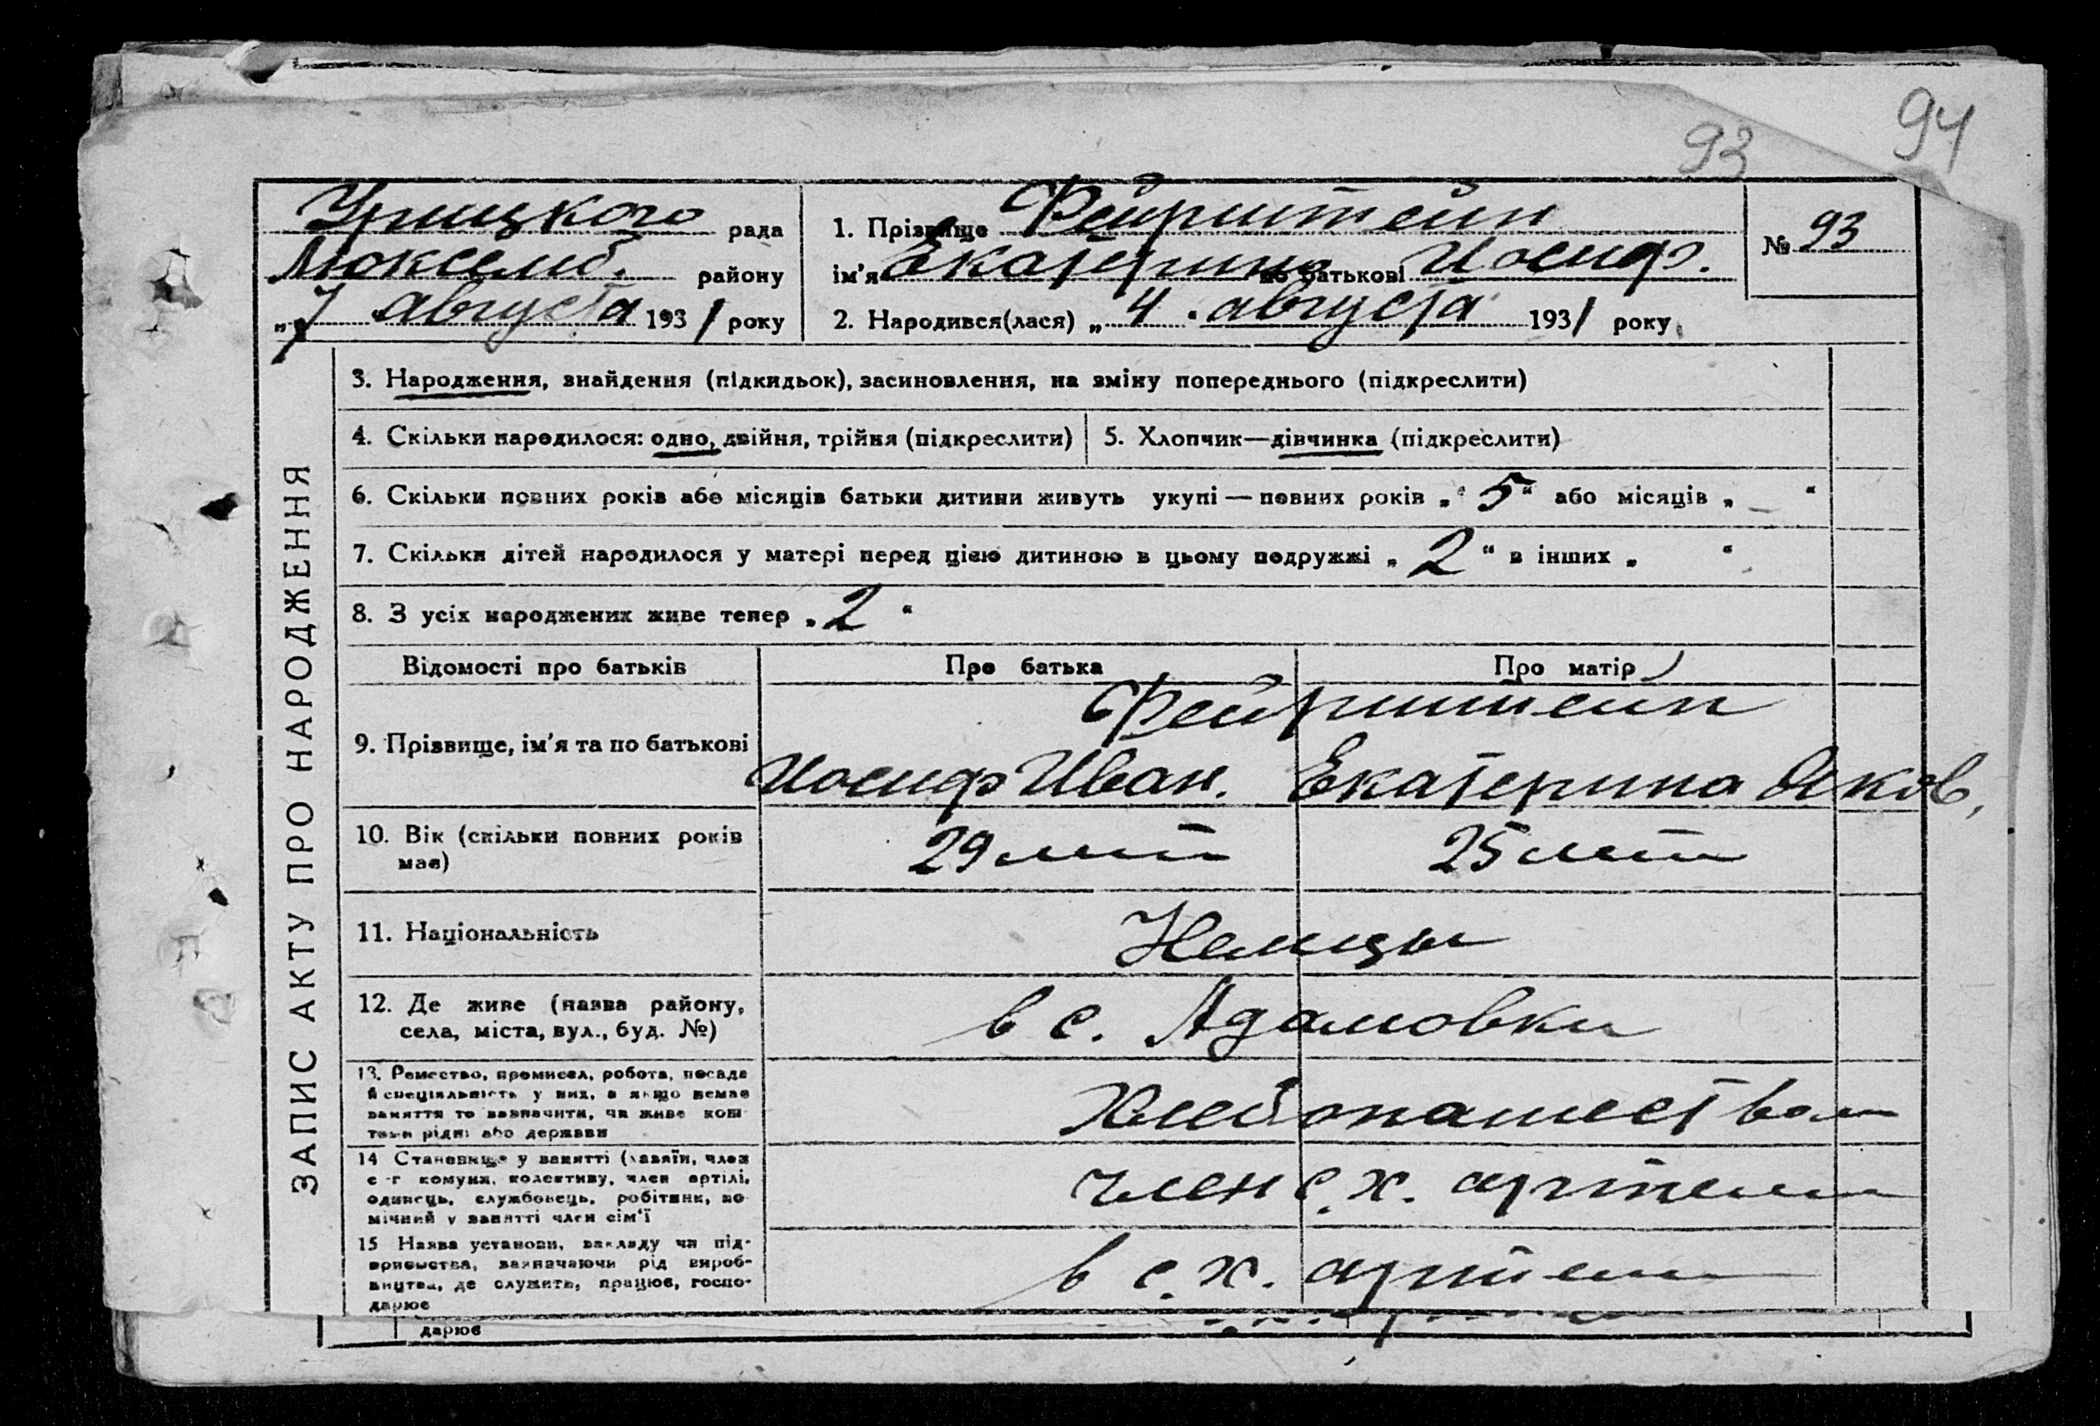 94
93
Урицкого рада
Люксемб. району
„7 августа 1931 року
1. Прізвище Фейрштейн
ім'я Екатерина по батькові Иосиф.
2. Народився(лася) „ 4 . августа 1931 року
№ 93
ЗАПИС АКТУ ПРО НАРОДЖЕННЯ
3. Народження, знайдення (підкидьок), засиновлення, на зміну попереднього (підкреслити)
4. Скільки народилося: одно, двійня, трійня (підкреслити)
5. Хлопчик—дівчинка (підкреслити)
6. Скільки повних років або місяців батьки дитини живуть укупі — повних років „ 5 “ або місяців „ — “
7. Скільки дітей народилося у матері перед цією дитиною в цьому подружжі „ 2 “ в інших „ “
8. З усіх народжених живе тепер „ 2 “
Відомості про батьків Про батька Про матір
9. Прізвище, ім'я та по батькові
Фейрштейн
Иосиф Иван. Екатерина Яков.
10. Вік (скільки повних років
має)
29 лет 25 лет
11. Національність
Немцы
12. Де живе (назва району,
села, міста, вул., буд. №)
в с. Адамовки
13. Ремество, промисел, робота, посада
й спеціяльність у них, а якщо немає
заняття то зазначити, чи живе кош
тами рідні або держави
Хлебопашеством
14 Становище у занятті (хазяїн, член
с-г комуни, колективу, член артілі,
одинець, службовець, робітник, по
мічний у занятті член сім'ї
член с.х. артели
15 Назва установи, закладу чи під-
приємства, зазначаючи рід вироб-
ництва, де служить, працює, госпо-
дарює
в с.х. артели
дарює